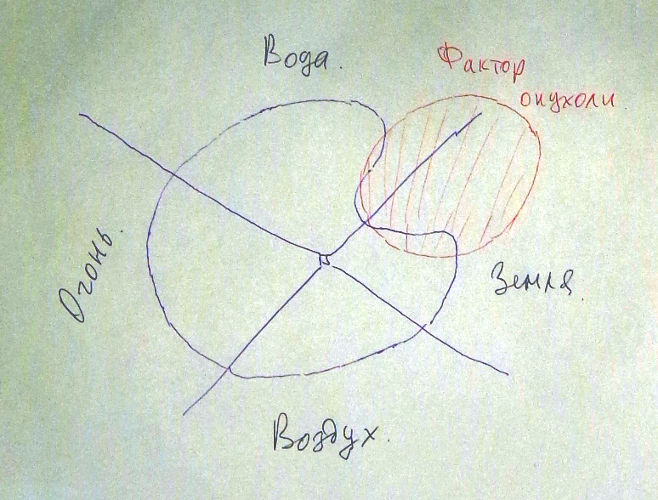 Вода.
Фактор
опухоли
Огонь.
Земля.
Воздух.